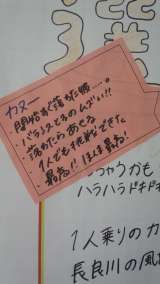 カヌー
・バランスとるのムズい!!
・落ちたらあせる
・1人でも挑戦できた
最高!! ほんま最高!
ちゃうかも
ハラハラドキド
1人乗りのカ
長良川の風